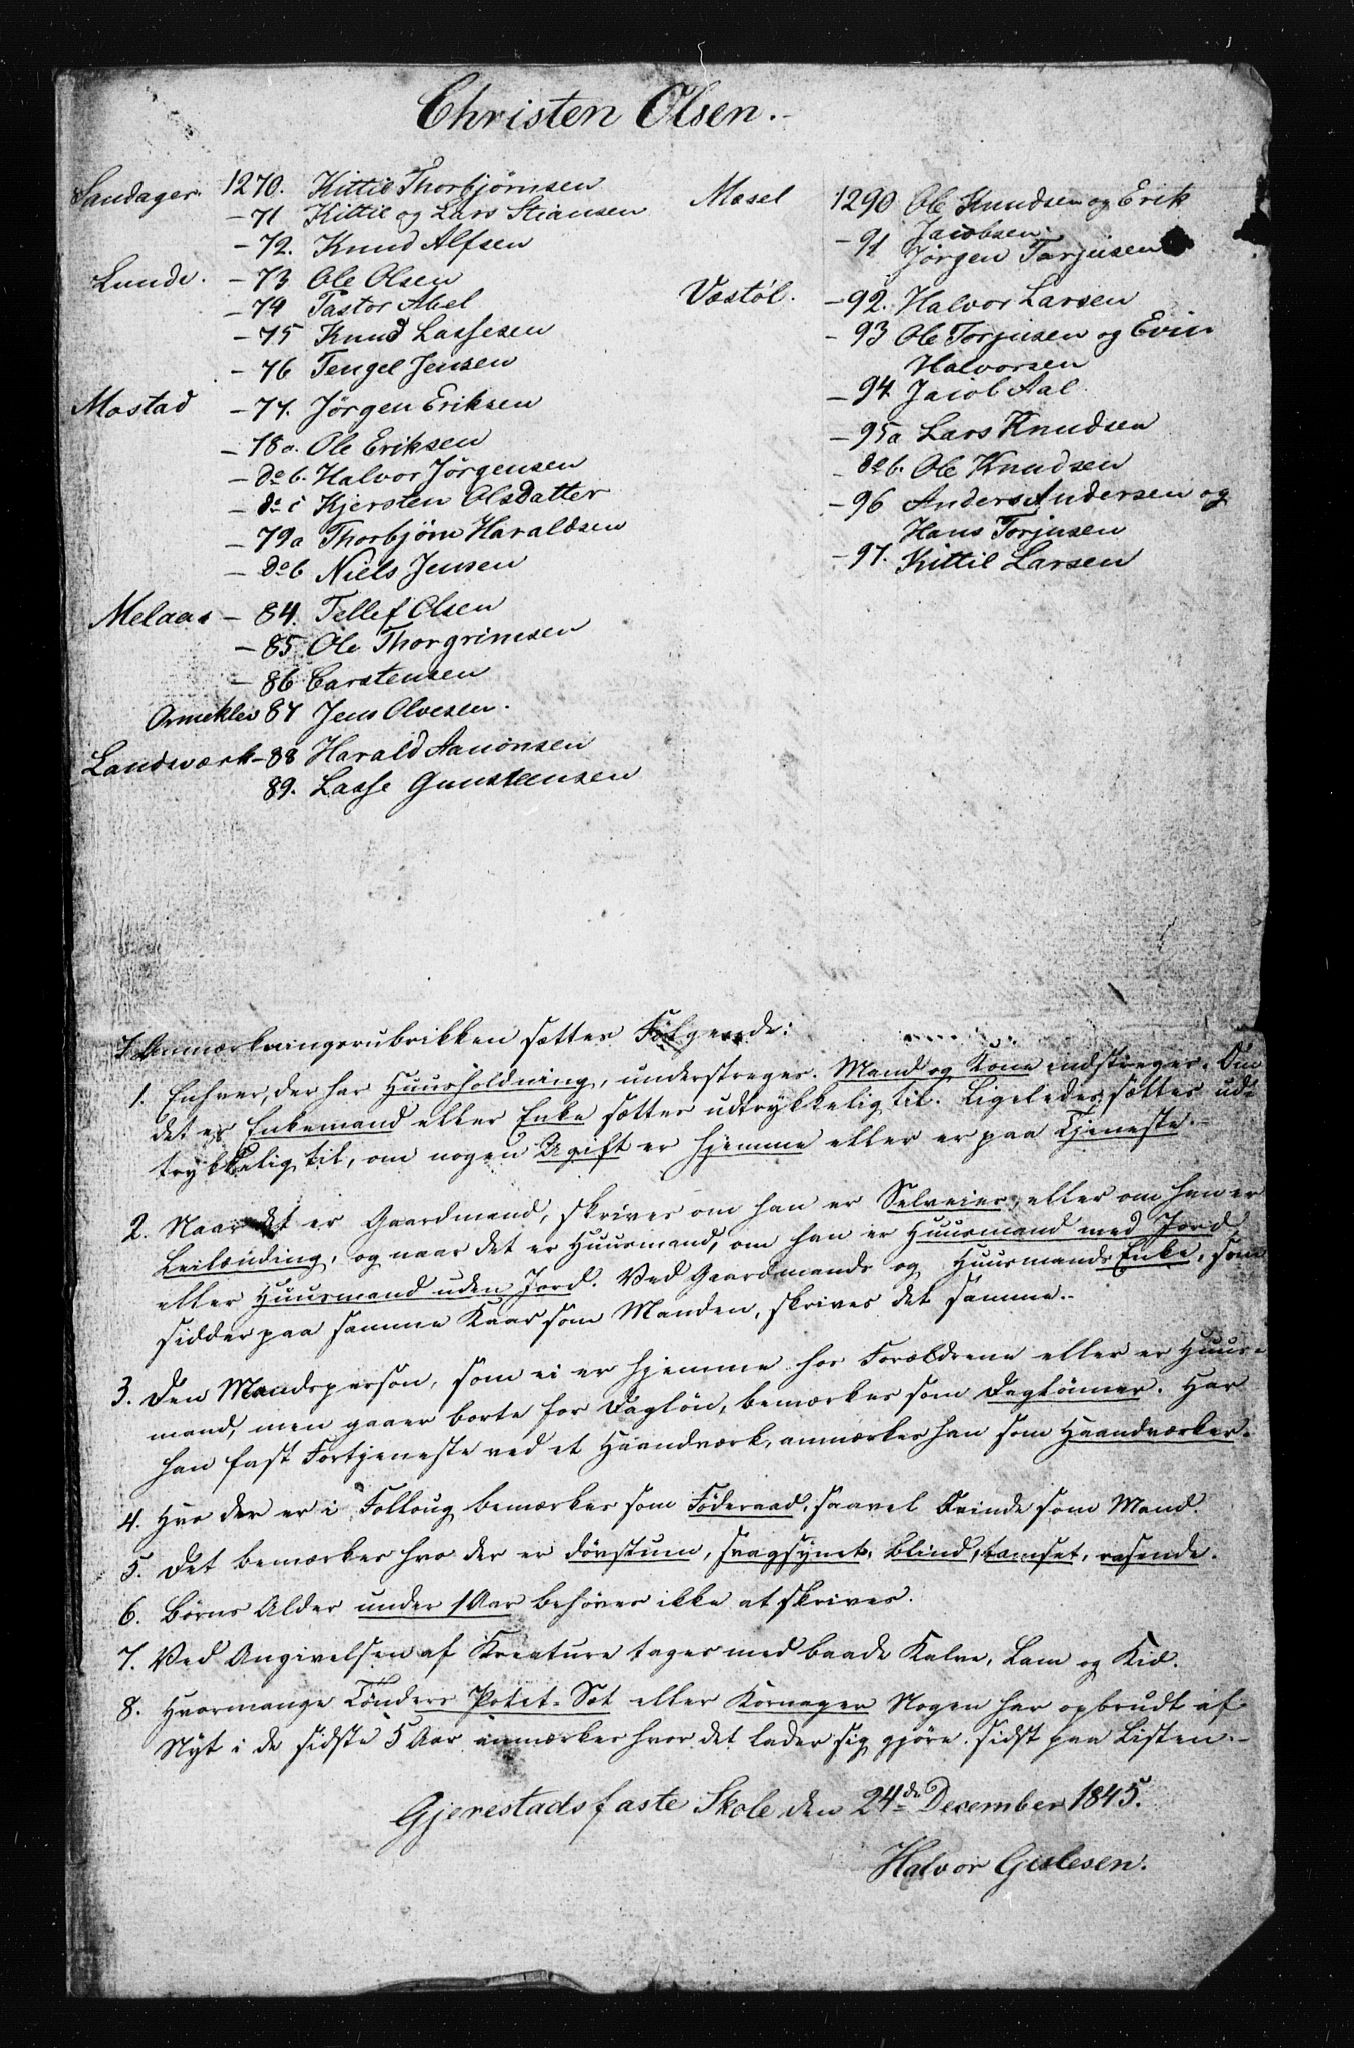 Christen Olsen.
Sandager. 1270. Kittil Thorbjørnsen
- 71 Kittil og Lars Stiansen
- 72. Knud Alfsen
Lunde. - 73 Ole Olsen
- 74 Pastor Abel
- 75 Knud Lassesen
- 76 Tengel Jensen
Mostad - 77. Jørgen Eriksen
- 78a. Ole Eriksen
- do b. Halvor Jørgensen
- do c Kjersten Olsdatter
- 79a Thorbjørn Haraldsen
- do b Niels Jensen
Melaas - 84. Tellef Olsen
- 85 Ole Thorgrimsen
- 86 Carstensen
Ormeklev 87 Jens Olvesen.
Landsværk - 88 Harald Aanonsen
89. Lasse Gunstensen
Mosel 1290 Ole Knudsen og Erik
Jacobsen.
- 91 Jørgen Torjusen
Vestøl. - 92. Halvor Larsen
- 93 Ole Torjusen og Evin
Halvorsen
- 94. Jacob Aal
- 95a Lars Knudsen
- do b. Ole Knudsen
- 96 Anders Andersen og
Hans Torjusen
- 97. Kittil Larsen
I Anmærkningsrubrikken sættes Følgende:
1. Enhver, der har Huusholdning, understreges. Mand og Kone indstreges. Om
det er Enkemand eller Enke sættes udtrykkelig til. Ligeledes sættes ud-
trykkelig til, om nogen Ugift er hjemme eller er paa Tjeneste.
2. Naar det er Gaardmand, skrives om han er Selveier, eller om han er
Leilænding, og naar det er Huusmand, om han er Huusmand med Jord
eller Huusmand uden Jord. Ved Gaardmands og Huusmands Enke, som
sidder paa samme Kaar som Manden, skrives det samme.
3. Den Mandsperson, som ei er hjemme hos Forældrene eller er Huus-
mand, men gaaer borte for Dagløn, bemærkes som Daglønner. Har
han fast Fortjeneste ved et Haandværk, anmærkes han som Haandværker.
4. Hvo der er i Folloug bemærkes som Föderaad, saavel Kvinde som Mand.
5. Det bemærkes hvo der er døvstum, svagsynet, blind, tamset, rasende.
6. Børns Alder under 1 Aar behøves ikke at skrives.
7. Ved Angivelsen af Kreature tages med baade Kalve, Lam og Kid.
8. Hvormange Tønders Potet-Sæt eller Kornager Nogen har opbrudt af
Nyt i de sidste 5 Aar anmærkes hvor det lader sig gjøre sidst paa Listen.
Gjerestads faste Skole den 24de December 1845.
Halvor Gislesen.